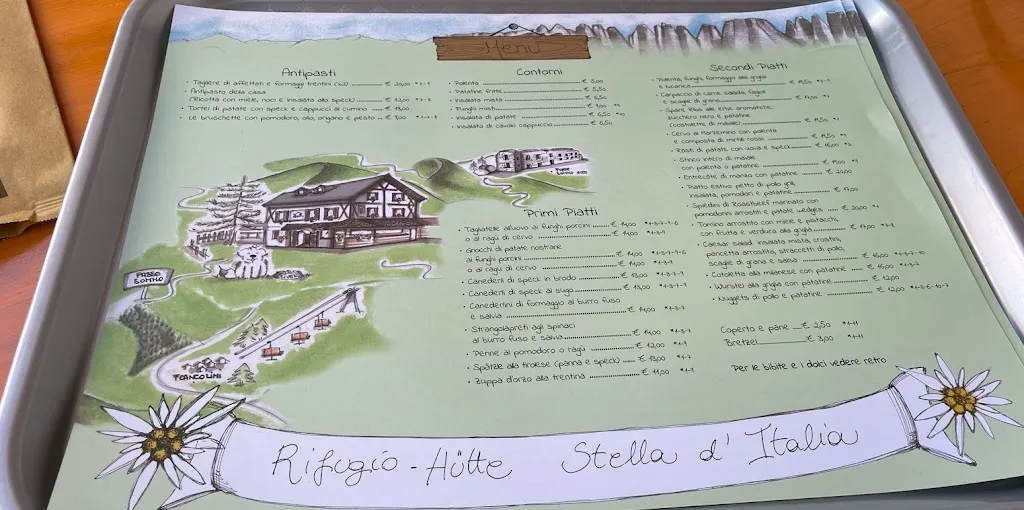 Menu
Antipasti
• Tagliere di affettati e formaggi trentini (x2) € 20,00
• Antipasto della casa
(Ricotta con miele, noci e insalata allo speck) € 12,00
• Tortel di patate con speck e cappucci al cumino € 13,00
• Le bruschette con pomodoro, olio, origano e pesto € 9,00
Contorni
• Polenta € 5,00
• Patatine fritte € 5,50
• Insalata mista € 6,50
• Funghi misti € 7,00
• Insalata di patate € 6,50 *10
• Insalata di cavolo cappuccio € 6,50
Primi Piatti
• Tagliatelle all'uovo ai funghi porcini € 14,00
o al ragù di cervo € 14,00 *1-3-9
• Gnocchi di patate nostrane
ai funghi porcini € 14,00
o al ragù di cervo € 14,00
• Canederli di speck in brodo € 13,00
• Canederli di speck al sugo € 13,00
• Canederlini di formaggio al burro fuso
e salvia € 14,00 *1-3-7
• Strangolapreti agli spinaci
al burro fuso e salvia € 14,00 *1-3-7
• Penne al pomodoro o ragù € 12,00
• Spätzle alla tirolese (panna e speck) € 13,00
• Zuppa d'orzo alla trentina € 11,00
Secondi Piatti
• Polenta, funghi, formaggio alla griglia
e lucanica € 19,50
• Carpaccio di carne salada, fagioli
e scaglie di grana € 17,00
• Spare Ribs alle erbe aromatiche,
zucchero nero e patatine
(costolette di maiale) € 19,50
• Cervo al Marzemino con polenta
e composta di mirtilli rossi € 19,50
• Rosti di patate con uova e speck € 16,00
• Stinco intero di maiale
con polenta o patatine € 19,00
• Entrecôte di manzo con patatine € 22,00
• Piatto estivo petto di pollo grill,
insalata, pomodori e patatine € 17,00
• Spiedini di Roastbeef marinato con
pomodorini arrostiti e patate wedges € 20,00
• Tomino arrostito con miele e pistacchi,
con frutta e verdura alla griglia € 17,00
• Caesar salad: insalata mista, crostini,
pancetta arrostita, straccetti di pollo,
scaglie di grana e salsa € 16,00
• Cotoletta alla milanese con patatine € 16,00
• Würstel alla griglia con patatine € 12,00
• Nuggets di pollo e patatine € 12,00
Coperto e pane € 2,50 *1-11
Bretzel € 3,00 *1-11
Per le bibite e i dolci vedere retro
PASSO
SOMMO
FRANCOLINI
Rifugio - Hütte Stella d' Italia